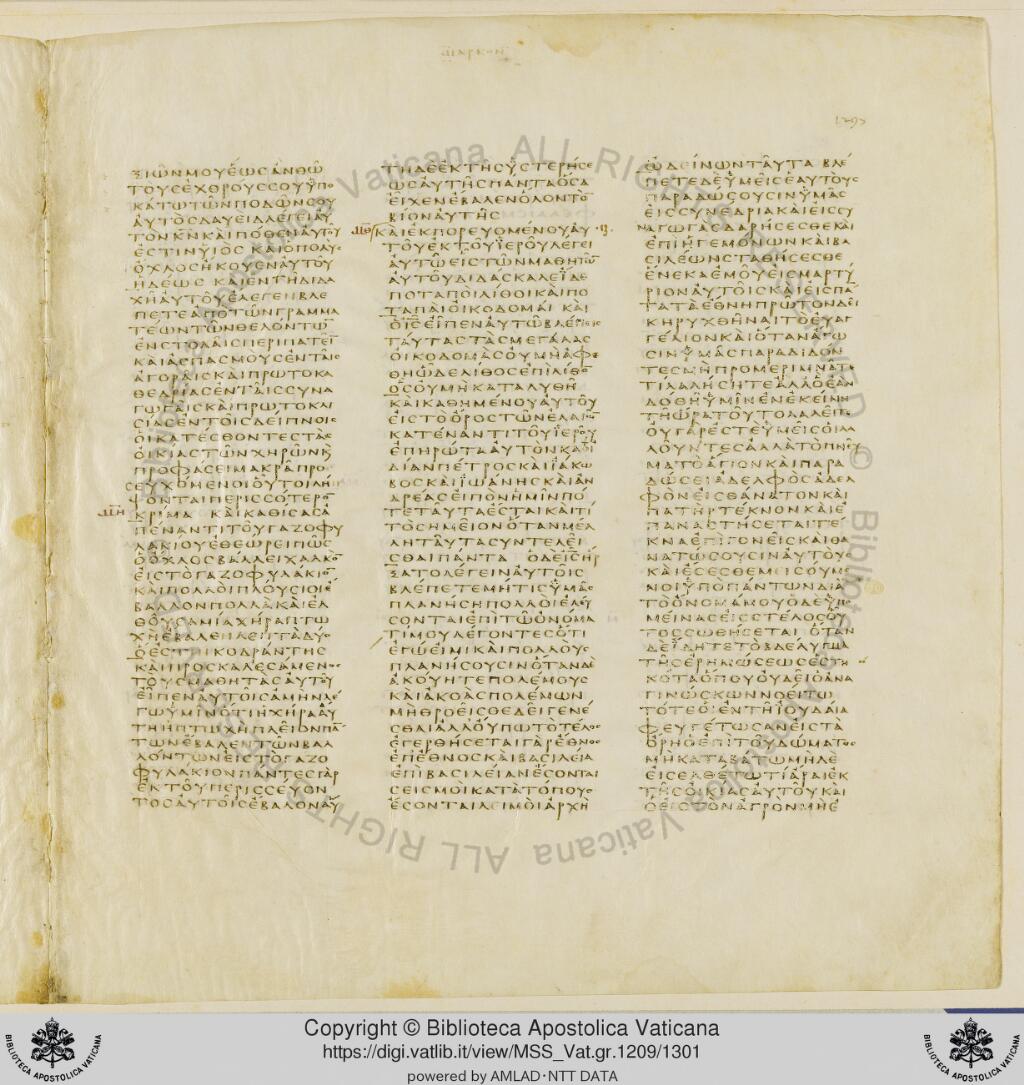 ΜΑΡΚΟΝ
1297
ΞΙΩΝΜΟΥΕΩΣΑΝΘΩ
ΤΟΥΣΕΧΘΡΟΥΣΣΟΥΥΠΟ
ΚΑΤΩΤΩΝΠΟΔΩΝΣΟΥ
ΑΥΤΟΣΔΑΥΕΙΔΛΕΓΕΙΑΥ
ΤΟΝΚΝΚΑΙΠΟΘΕΝΑΥΤΟΥ
ΕΣΤΙΝΥΙΟΣ ΚΑΙΟΠΟΛΥΣ
ΟΧΛΟΣΗΚΟΥΕΝΑΥΤΟΥ
ΗΔΕΩΣ ΚΑΙΕΝΤΗΔΙΔΑ
ΧΗΑΥΤΟΥΕΛΕΓΕΝΒΛΕ
ΠΕΤΕΑΠΟΤΩΝΓΡΑΜΜΑ
ΤΕΩΝΤΩΝΘΕΛΟΝΤΩ
ΕΝΣΤΟΛΑΙΣΠΕΡΙΠΑΤΕΙ
ΚΑΙΑΣΠΑΣΜΟΥΣΕΝΤΑΙΣ
ΑΓΟΡΑΙΣΚΑΙΠΡΩΤΟΚΑ
ΘΕΔΡΙΑΣΕΝΤΑΙΣΣΥΝΑ
ΓΩΓΑΙΣΚΑΙΠΡΩΤΟΚΛΙ
ΣΙΑΣΕΝΤΟΙΣΔΕΙΠΝΟΙΣ
ΟΙΚΑΤΕΣΘΟΝΤΕΣΤΑΣ
ΟΙΚΙΑΣΤΩΝΧΗΡΩΝΚ
ΠΡΟΦΑΣΕΙΜΑΚΡΑΠΡΟ
ΣΕΥΧΟΜΕΝΟΙΟΥΤΟΙΛΗΜ
ΨΟΝΤΑΙΠΕΡΙΣΣΟΤΕΡΟ
ΜΗ ΚΡΙΜΑ ΚΑΙΚΑΘΙΣΑΣΑ
ΠΕΝΑΝΤΙΤΟΥΓΑΖΟΦΥ
ΛΑΚΙΟΥΕΘΕΩΡΕΙΠΩΣ
ΟΟΧΛΟΣΒΑΛΛΕΙΧΑΛΚΟ
ΕΙΣΤΟΓΑΖΟΦΥΛΑΚΙΟ
ΚΑΙΠΟΛΛΟΙΠΛΟΥΣΙΟΙΕ
ΒΑΛΛΟΝΠΟΛΛΑΚΑΙΕΛ
ΘΟΥΣΑΜΙΑΧΗΡΑΠΤΩ
ΧΗΕΒΑΛΕΝΛΕΠΤΑΔΥΟ
ΟΕΣΤΙΚΟΔΡΑΝΤΗΣ
ΚΑΙΠΡΟΣΚΑΛΕΣΑΜΕΝΟΣ
ΤΟΥΣΜΑΘΗΤΑΣΑΥΤΟΥ
ΕΙΠΕΝΑΥΤΟΙΣΑΜΗΝΛΕ
ΓΩΥΜΙΝΟΤΙΗΧΗΡΑΑΥ
ΤΗΗΠΤΩΧΗΠΛΕΙΟΝΠΑ
ΤΩΝΕΒΑΛΕΝΤΩΝΒΑΛ
ΛΟΝΤΩΝΕΙΣΤΟΓΑΖΟ
ΦΥΛΑΚΙΟΝΠΑΝΤΕΣΓΑΡ
ΕΚΤΟΥΠΕΡΙΣΣΕΥΟΝ
ΤΟΣΑΥΤΟΙΣΕΒΑΛΟΝΑΥ
ΤΗΔΕΕΚΤΗΣΥΣΤΕΡΗΣΕ
ΩΣΑΥΤΗΣΠΑΝΤΑΟΣΑ
ΕΙΧΕΝΕΒΑΛΕΝΟΛΟΝΤΟ
ΒΙΟΝΑΥΤΗΣ
ΜΘ ΚΑΙΕΚΠΟΡΕΥΟΜΕΝΟΥΑΥ
ΤΟΥΕΚΤΟΥΙΕΡΟΥΛΕΓΕΙ
ΑΥΤΩΕΙΣΤΩΝΜΑΘΗΤΩ
ΑΥΤΟΥΔΙΔΑΣΚΑΛΕΙΔΕ
ΠΟΤΑΠΟΙΛΙΘΟΙΚΑΙΠΟ
ΤΑΠΑΙΟΙΚΟΔΟΜΑΙ ΚΑΙ
ΟΙΣΕΙΠΕΝΑΥΤΩΒΛΕΠΕΙΣ
ΤΑΥΤΑΣΤΑΣΜΕΓΑΛΑΣ
ΟΙΚΟΔΟΜΑΣΟΥΜΗΑΦΕ
ΘΗΩΔΕΛΙΘΟΣΕΠΙΛΙΘΟ
ΟΣΟΥΜΗΚΑΤΑΛΥΘΗ
ΚΑΙΚΑΘΗΜΕΝΟΥΑΥΤΟΥ
ΕΙΣΤΟΟΡΟΣΤΩΝΕΛΑΙΩ
ΚΑΤΕΝΑΝΤΙΤΟΥΙΕΡΟΥ
ΕΠΗΡΩΤΑΑΥΤΟΝΚΑΘΙ
ΔΙΑΝΠΕΤΡΟΣΚΑΙΙΑΚΩ
ΒΟΣΚΑΙΙΩΑΝΗΣΚΑΙΑΝ
ΔΡΕΑΣΕΙΠΟΝΗΜΙΝΠΟ
ΤΕΤΑΥΤΑΕΣΤΑΙΚΑΙΤΙ
ΤΟΣΗΜΕΙΟΝΟΤΑΝΜΕΛ
ΛΗΤΑΥΤΑΣΥΝΤΕΛΕΙ
ΣΘΑΙΠΑΝΤΑ ΟΔΕΙΣΗΡ
ΞΑΤΟΛΕΓΕΙΝΑΥΤΟΙΣ
ΒΛΕΠΕΤΕΜΗΤΙΣΥΜΑΣ
ΠΛΑΝΗΣΗΠΟΛΛΟΙΕΛΕΥ
ΣΟΝΤΑΙΕΠΙΤΩΟΝΟΜΑ
ΤΙΜΟΥΛΕΓΟΝΤΕΣΟΤΙ
ΕΓΩΕΙΜΙΚΑΙΠΟΛΛΟΥΣ
ΠΛΑΝΗΣΟΥΣΙΝΟΤΑΝΔΕ
ΑΚΟΥΗΤΕΠΟΛΕΜΟΥΣ
ΚΑΙΑΚΟΑΣΠΟΛΕΜΩΝ
ΜΗΘΡΟΕΙΣΘΕΔΕΙΓΕΝΕ
ΣΘΑΙΑΛΛΟΥΠΩΤΟΤΕΛΟΣ
ΕΓΕΡΘΗΣΕΤΑΙΓΑΡΕΘΝΟΣ
ΕΠΕΘΝΟΣΚΑΙΒΑΣΙΛΕΙΑ
ΕΠΙΒΑΣΙΛΕΙΑΝΕΣΟΝΤΑΙ
ΣΕΙΣΜΟΙΚΑΤΑΤΟΠΟΥΣ
ΕΣΟΝΤΑΙΛΕΙΜΟΙΑΡΧΗ
ΩΔΕΙΝΩΝΤΑΥΤΑ ΒΛΕ
ΠΕΤΕΔΕΥΜΕΙΣΕΑΥΤΟΥΣ
ΠΑΡΑΔΩΣΟΥΣΙΝΥΜΑΣ
ΕΙΣΣΥΝΕΔΡΙΑΚΑΙΕΙΣΣΥ
ΝΑΓΩΓΑΣΔΑΡΗΣΕΣΘΕΚΑΙ
ΕΠΙΗΓΕΜΟΝΩΝΚΑΙΒΑ
ΣΙΛΕΩΝΣΤΑΘΗΣΕΣΘΕ
ΕΝΕΚΑΕΜΟΥΕΙΣΜΑΡΤΥ
ΡΙΟΝΑΥΤΟΙΣΚΑΙΕΙΣΠΑ
ΤΑΤΑΕΘΝΗΠΡΩΤΟΝΔΕΙ
ΚΗΡΥΧΘΗΝΑΙΤΟΕΥΑΓ
ΓΕΛΙΟΝΚΑΙΟΤΑΝΑΓΩ
ΣΙΝΥΜΑΣΠΑΡΑΔΙΔΟΝ
ΤΕΣΜΗΠΡΟΜΕΡΙΜΝΑΤΕ
ΤΙΛΑΛΗΣΗΤΕΑΛΛΟΕΑΝ
ΔΟΘΗΥΜΙΝΕΝΕΚΕΙΝΗ
ΤΗΩΡΑΤΟΥΤΟΛΑΛΕΙΤΕ
ΟΥΓΑΡΕΣΤΕΥΜΕΙΣΟΙΛΑ
ΛΟΥΝΤΕΣΑΛΛΑΤΟΠΝΕΥ
ΜΑΤΟΑΓΙΟΝΚΑΙΠΑΡΑ
ΔΩΣΕΙΑΔΕΛΦΟΣΑΔΕΛ
ΦΟΝΕΙΣΘΑΝΑΤΟΝΚΑΙ
ΠΑΤΗΡΤΕΚΝΟΝΚΑΙΕ
ΠΑΝΑΣΤΗΣΕΤΑΙΤΕ
ΚΝΑΕΠΙΓΟΝΕΙΣΚΑΙΘΑ
ΝΑΤΩΣΟΥΣΙΝΑΥΤΟΥΣ
ΚΑΙΕΣΕΣΘΕΜΕΙΣΟΥΜΕ
ΝΟΙΥΠΟΠΑΝΤΩΝΔΙΑ
ΤΟΟΝΟΜΑΜΟΥΟΔΕΥΠΟ
ΜΕΙΝΑΣΕΙΣΤΕΛΟΣΟΥ
ΤΟΣΣΩΘΗΣΕΤΑΙ ΟΤΑΝ
ΔΕΙΔΗΤΕΤΟΒΔΕΛΥΓΜΑ
ΤΗΣΕΡΗΜΩΣΕΩΣΕΣΤΗ
ΚΟΤΑΟΠΟΥΟΥΔΕΙΟΑΝΑ
ΓΙΝΩΣΚΩΝΝΟΕΙΤΩ
ΤΟΤΕΟΙΕΝΤΗΙΟΥΔΑΙΑ
ΦΕΥΓΕΤΩΣΑΝΕΙΣΤΑ
ΟΡΗΟΕΠΙΤΟΥΔΩΜΑΤΟΣ
ΜΗΚΑΤΑΒΑΤΩΜΗΔΕ
ΕΙΣΕΛΘΕΤΩΤΙΑΡΑΙΕΚ
ΤΗΣΟΙΚΙΑΣΑΥΤΟΥΚΑΙ
ΟΕΙΣΤΟΝΑΓΡΟΝΜΗΕ
Copyright © Biblioteca Apostolica Vaticana
https://digi.vatlib.it/view/MSS_Vat.gr.1209/1301
powered by AMLAD·NTT DATA
BIBLIOTECA APOSTOLICA VATICANA
BIBLIOTECA APOSTOLICA VATICANA